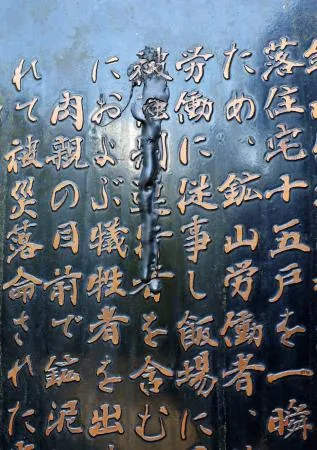 落住宅十五戸を一瞬
ため、鉱山労働者、
労働に従事し飯場に
者を含む
におよぶ犠牲者を出
肉親の目前で鉱泥
れて被災落命された